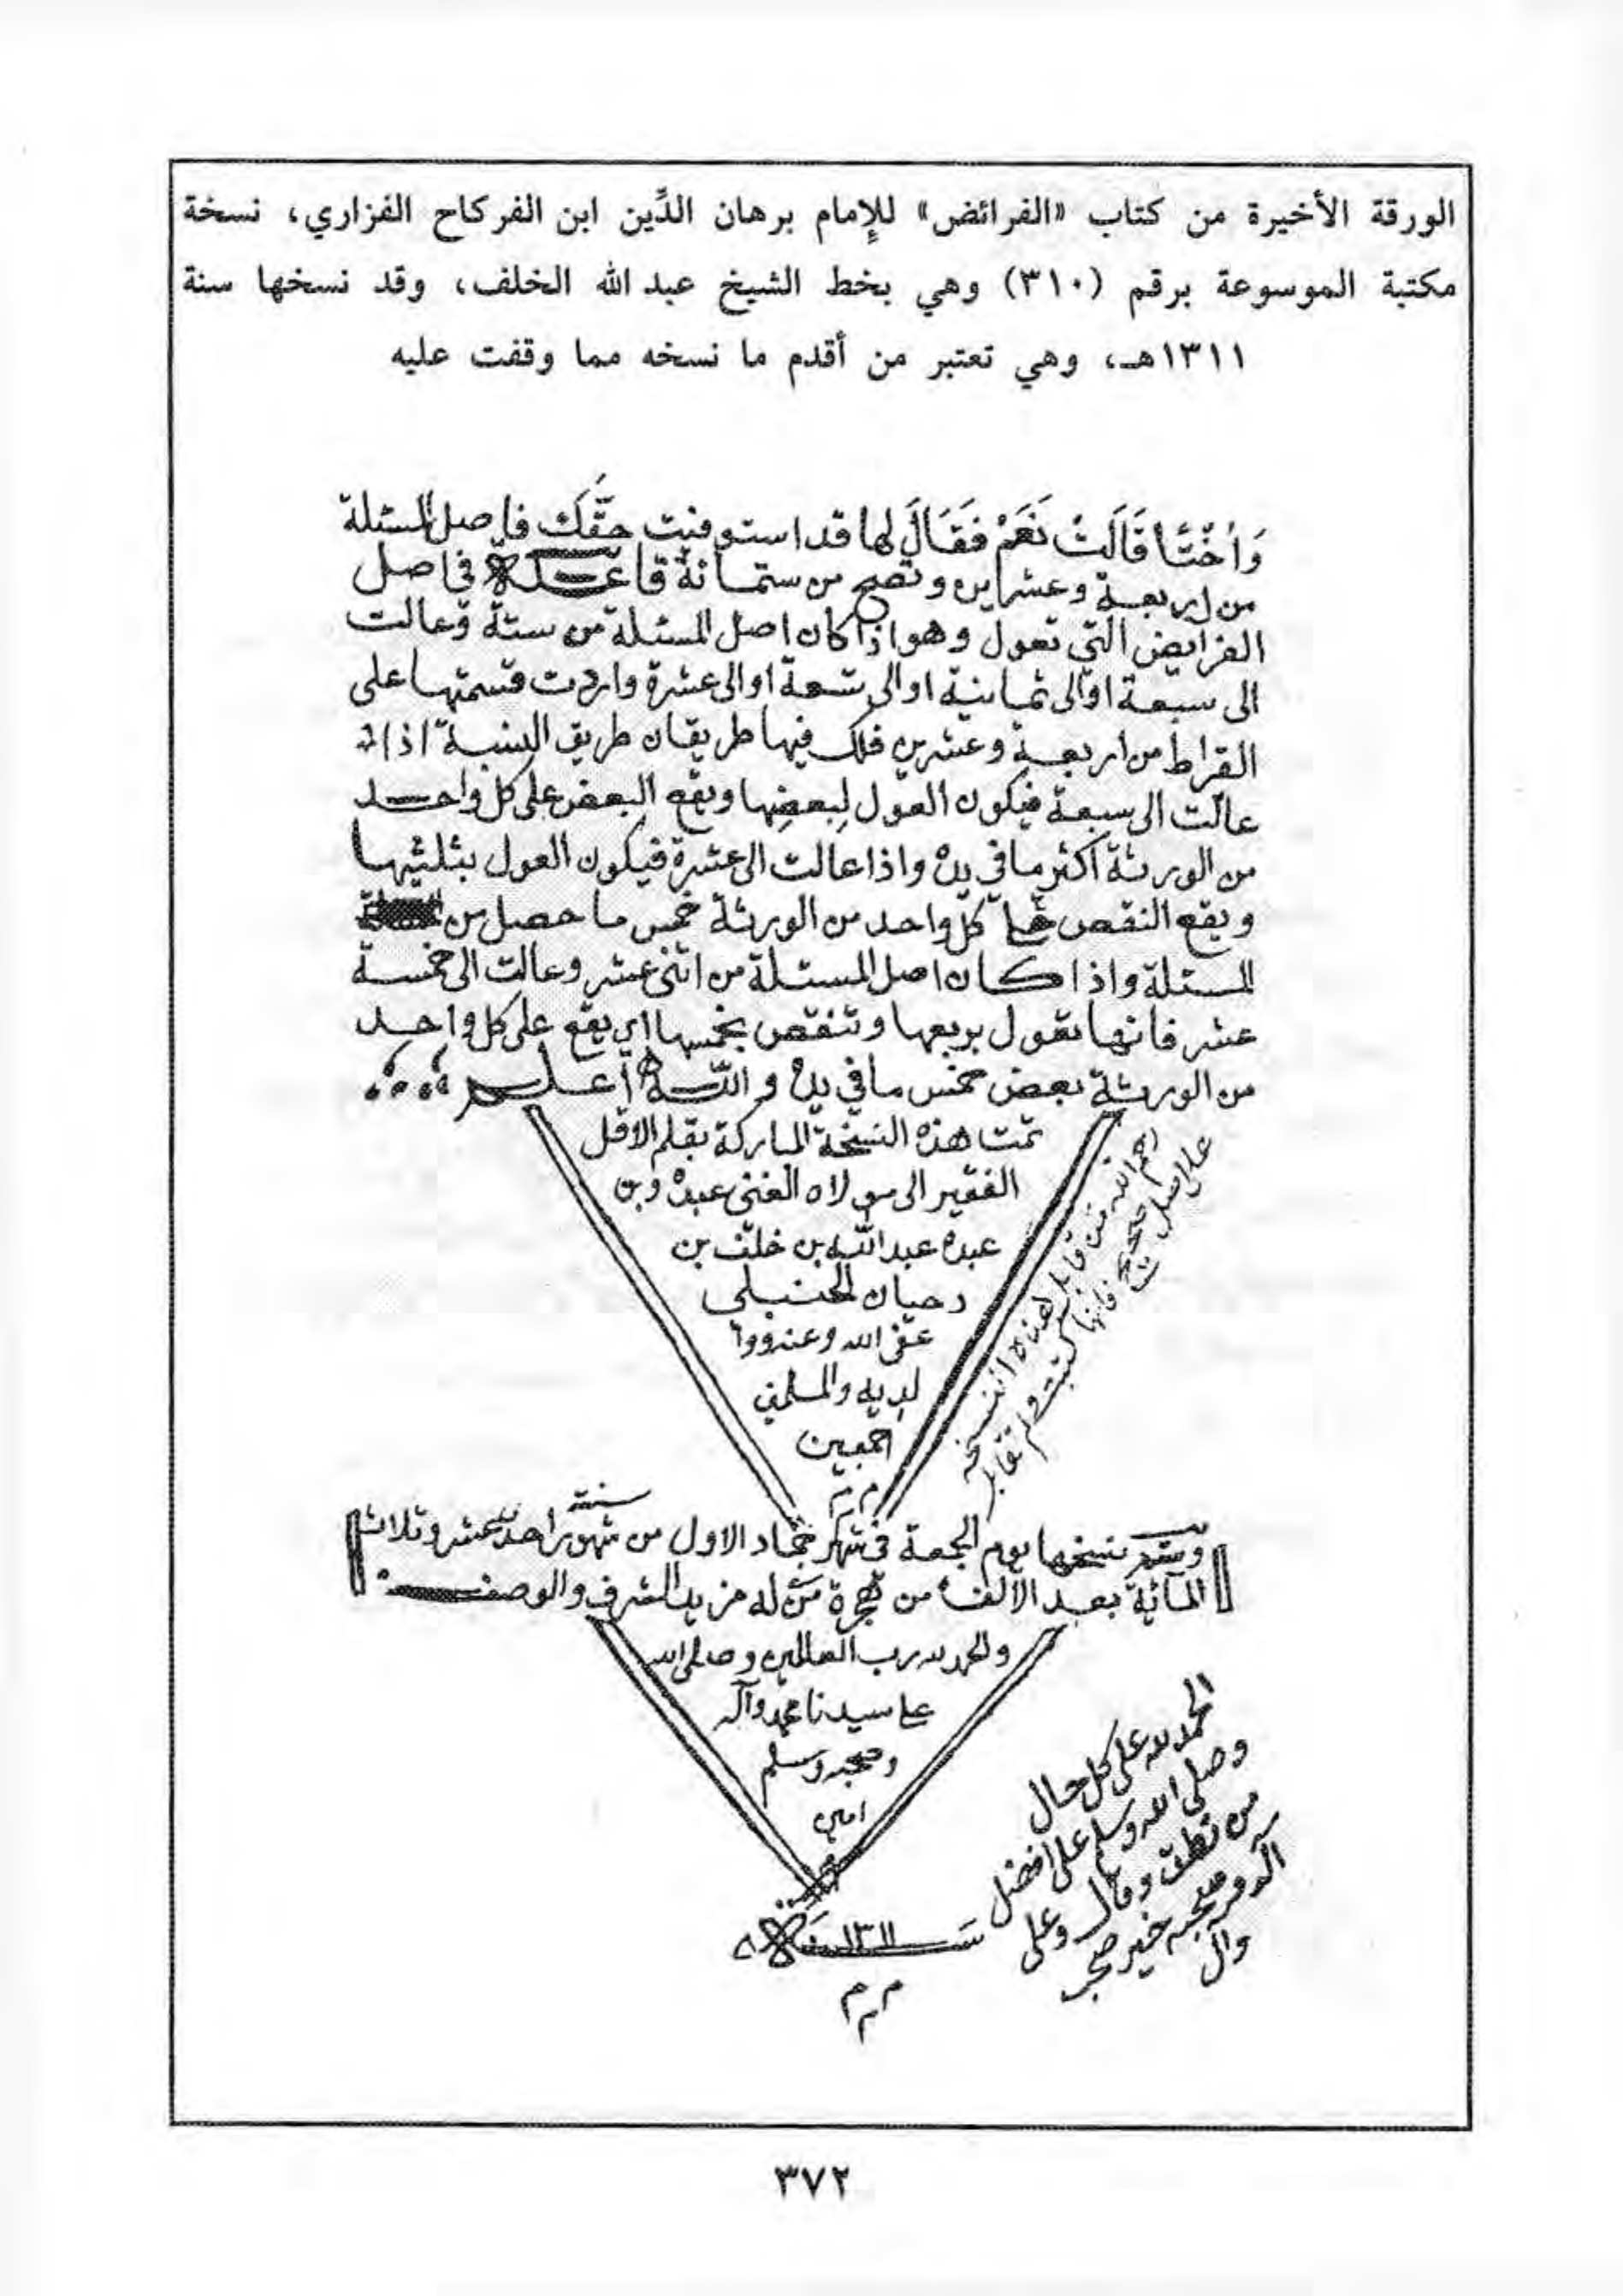 الورقة الأخيرة من كتاب «الفرائض» للإمام برهان الدِّين ابن الفركاح الفزاري، نسخة
مكتبة الموسوعة برقم (٣١٠) وهي بخط الشيخ عبد الله الخلف، وقد نسخها سنة
١٣١١هـ، وهي تعتبر من أقدم ما نسخه مما وقفت عليه
وَاُخْتًا قَالَتْ نَعَمْ فَقَالَ لها قد استوفيت حقَّكَ فاصل المسئلة
من اربعة وعشرين وتصح من ستمائة قاعدة في اصل
الفرايض التي تعول وهو اذا كان اصل المسئلة من ستة وعالت
الى سبعة او الى ثمانية او الى تسعة او الى عشرة واردت قسمتها على
القراط من اربعة وعشرين فلك فيها طريقان طريق النسبة اذا
عالت الى سبعة فيكون العول لبعضها ويقع البعض على كل واحد
من الورثة اكثر ما في يده واذا عالت الى عشرة فيكون العول بثلثيها
ويقع النقص على كل واحد من الورثة خمس ما حصل من
المسئلة واذا كان اصل المسئلة من اثنى عشر وعالت الى خمسة
عشر فانها تعول بربعها وتنقص بخمسها اي يقع على كل واحد
من الورثة بعض خمس ما في يده والله أعلم
تمت هذه النسخة المباركة بقلم الاقل
الفقير الى مولاه الغني عبده وبن
عبده عبد الله بن خلف بن
دحيان الحنبلي
عفى الله وعنه ووا
لديه والمسلمين
اجمعين
م م م
رحم الله من قابل لهذه النسخة
على اصل صحيح فانها كتبت ولم تقابل
وتم نسخها يوم الجمعة في شهر جماد الاول من شهور سنة احدى عشر وثلاث
المائية بعد الألف من هجرة من له مزيد الشرف والوصف
والحمد لله رب العالمين وصلى الله
على سيدنا محمد وآله
وصحبه وسلم
امين
سنة ١٣١١
م م م
الحمد لله على كل حال
وصلى الله وسلم على افضل
من نطق وقال وعلى
آله وصحبه خير صحب
وآل
٣٧٢